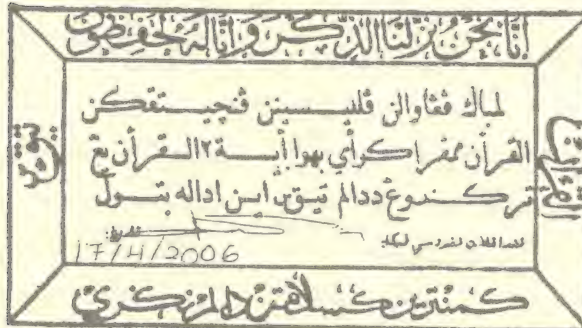 إنا نحن نزلنا الذكر وإنا له لحفظون
لمباڬ ڤڠاوالن ڤليسينن ڤنچيتقكن
القرأن ممڤراكوأي بهوا أية٢ القرأن يڠ
تركندوڠ ددالم تيقس اين اداله بتول
تاريخ:
17/4/2006
كمنترين كسلامتن دالم نڬري